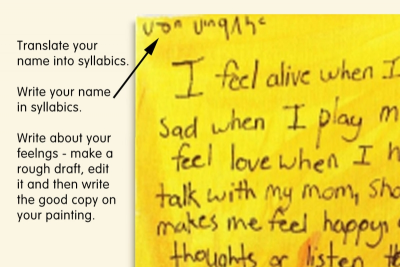 Translate your
name into syllabics.
Write your name
in syllabics.
Write about your
feelngs - make a
rough draft, edit
it and then write
the good copy on
your painting.
I feel alive when I
sad when I play m
feel love when I h
talk with my mom, sho
makes me feel happy.
thoughts or listen